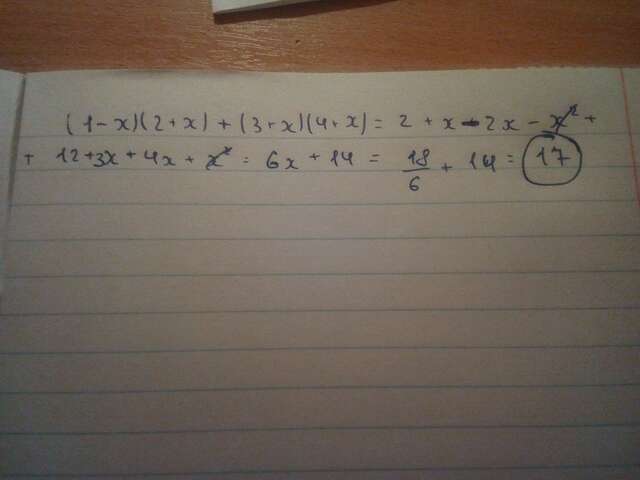 (1-x)(2+x)+(3+x)(4+x)= 2+x-2x-x²+
+ 12+3x+4x+x² = 6x+14 = 18/6 + 14 = 17